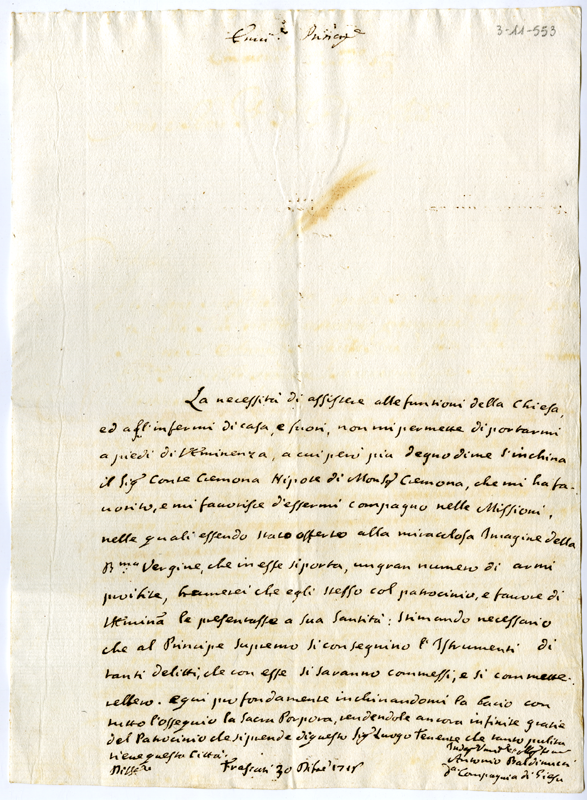 3-11-553
Emin.e Principe
La necessità di assistere alle funtioni della Chiesa,
ed agl'infermi di casa, e fuori, non mi permette di portarmi
a piedi di V. Eminenza, a cui però più degno di me s'inchina
il Sig. Conte Cremona Nipote di Mons. Cremona, che mi ha fa-
uorito, e mi fauorisce d'essermi compagno nelle Missioni,
nelle quali essendo stato offerto alla miracolosa Imagine della
B.ma Vergine, che in esse si porta, un gran numero di armi
proibite, bramerei che egli stesso col patrocinio, e fauore di
V. Emin.a le presentasse a sua Santità: stimando necessario
che al Principe supremo si consegnino l'Istrumenti di
tanti delitti, che con esse si saranno commessi, e si commette-
rebbero. e qui profondamente inchinandomi la bacio con
tutto l'ossequio la Sacra Porpora, rendendole ancora infinite gratie
del Patrocinio che si prende di questo Sig. Luogo Tenente che tanto pulita
tiene questa Città.
Antonio Baldinucci
d.a Compagnia di Giesù
Frascati 30